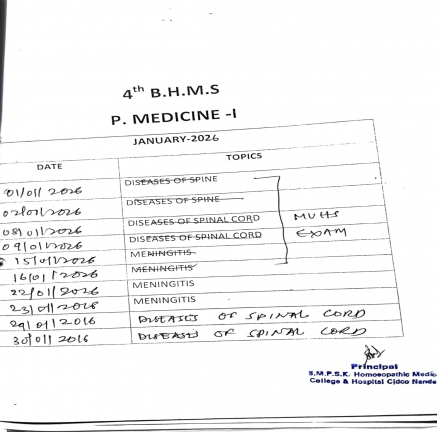 4th B.H.M.S
P. MEDICINE -I
JANUARY-2026
DATE TOPICS
01/01/2026 DISEASES OF SPINE
02/01/2026 DISEASES OF SPINE
08/01/2026 DISEASES OF SPINAL CORD MUHS
09/01/2026 DISEASES OF SPINAL CORD EXAM
15/01/2026 MENINGITIS
16/01/2026 MENINGITIS
22/01/2026 MENINGITIS
23/01/2026 MENINGITIS
29/01/2016 DISEASES OF SPINAL CORD
30/01/2016 DISEASES OF SPINAL CORD
Principal
S.M.P.S.K. Homoeopathic Medic
College & Hospital Cidco Nande